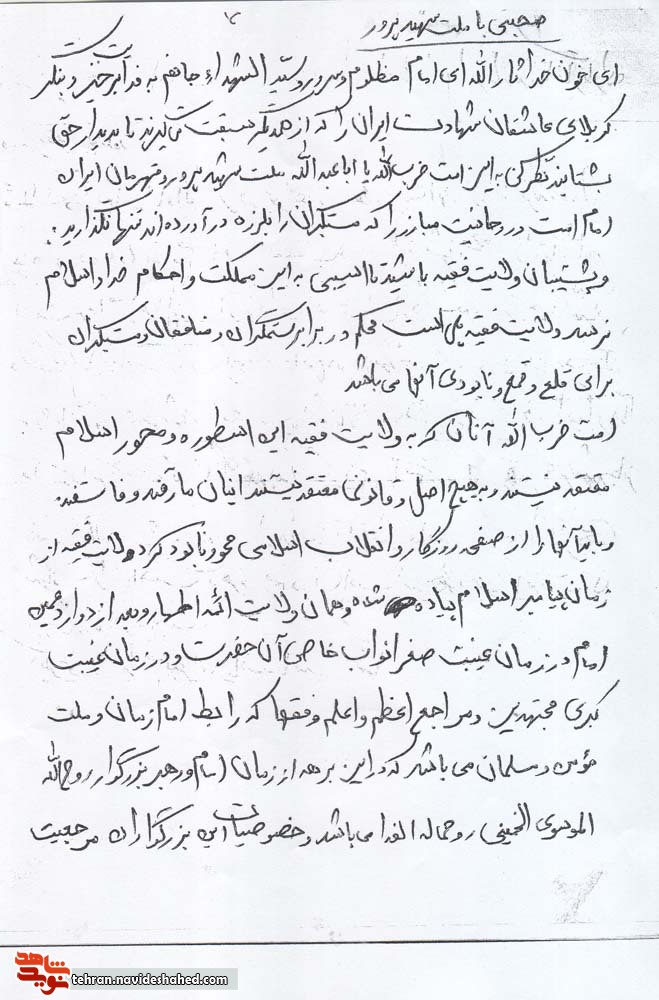 ۲
صحبتی با ملت شهید پرور
ای خون خدا ثارالله ای امام مظلوم و سرور و سید الشهداء جانم به فدایت برخیز و بنگر
کربلای عاشقان شهادت ایران را که از همدیگر سبقت میگیرند تا بدیدار حق
بشتابند نظر کن به این امت حزب الله یا ابا عبد الله ملت شهید پرور و قهرمان ایران
امام امت و روحانیت مبارز را که مستکبران را بلرزه در آورده اند تنها نگذارید.
و پشتیبان ولایت فقیه باشید تا آسیبی به این مملکت و احکام خدا و اسلام
نرسد ولایت فقیه پلی است محکم در برابر ستمگران و منافقان و مستکبران
برای قلع و قمع و نابودی آنها می باشد
امت حزب الله آنان که به ولایت فقیه این اسطوره و محور اسلام
معتقد نیستند و به هیچ اصل و قانونی معتقد نیستند اینان مارقند و فاسقند
و باید آنها را از صفحه روزگار و انقلاب اسلامی محو و نابود کرد ولایت فقیه از
زمان پیامبر اسلام پیاده شده و همان ولایت ائمه اطهار و بعد از دوازدهمین
امام در زمان غیبت صغرا نواب خاص آن حضرت و در زمان غیبت
کبری مجتهدین و مراجع اعظم و اعلم و فقها که رابط امام زمان و ملت
مؤمن و مسلمان می باشد که در این برهه از زمان امام و رهبر بزرگوار روح الله
الموسوی الخمینی روحی له الفدا می باشد و خصوصیات این بزرگواران مرجعیت
نوید شاهد
tehran.navideshahed.com